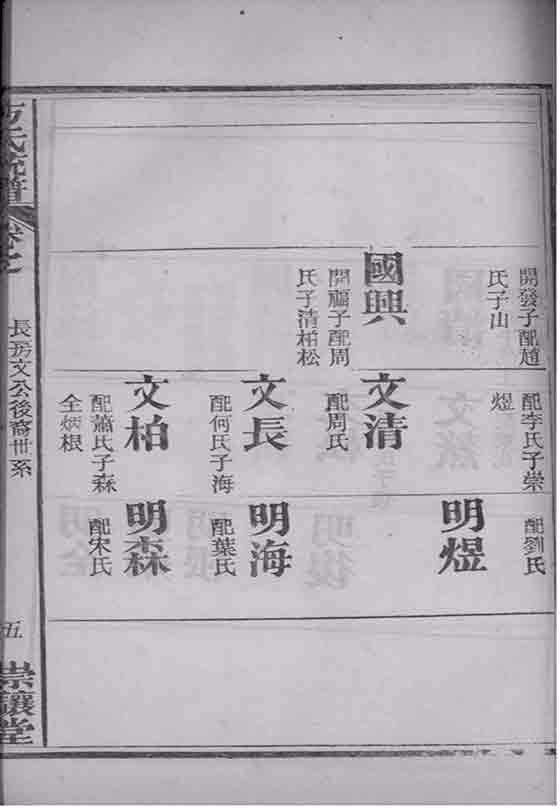 開發子配趙
氏子山
國興
開福子配周
氏子清柏松
配李氏子崇
煜
文清
配周氏
文長
配何氏子海
文柏
配蕭氏子森
全炳根
配劉氏
明煜
明海
配葉氏
明森
配宋氏
方氏統譜
長房文公後裔世系
五
崇讓堂